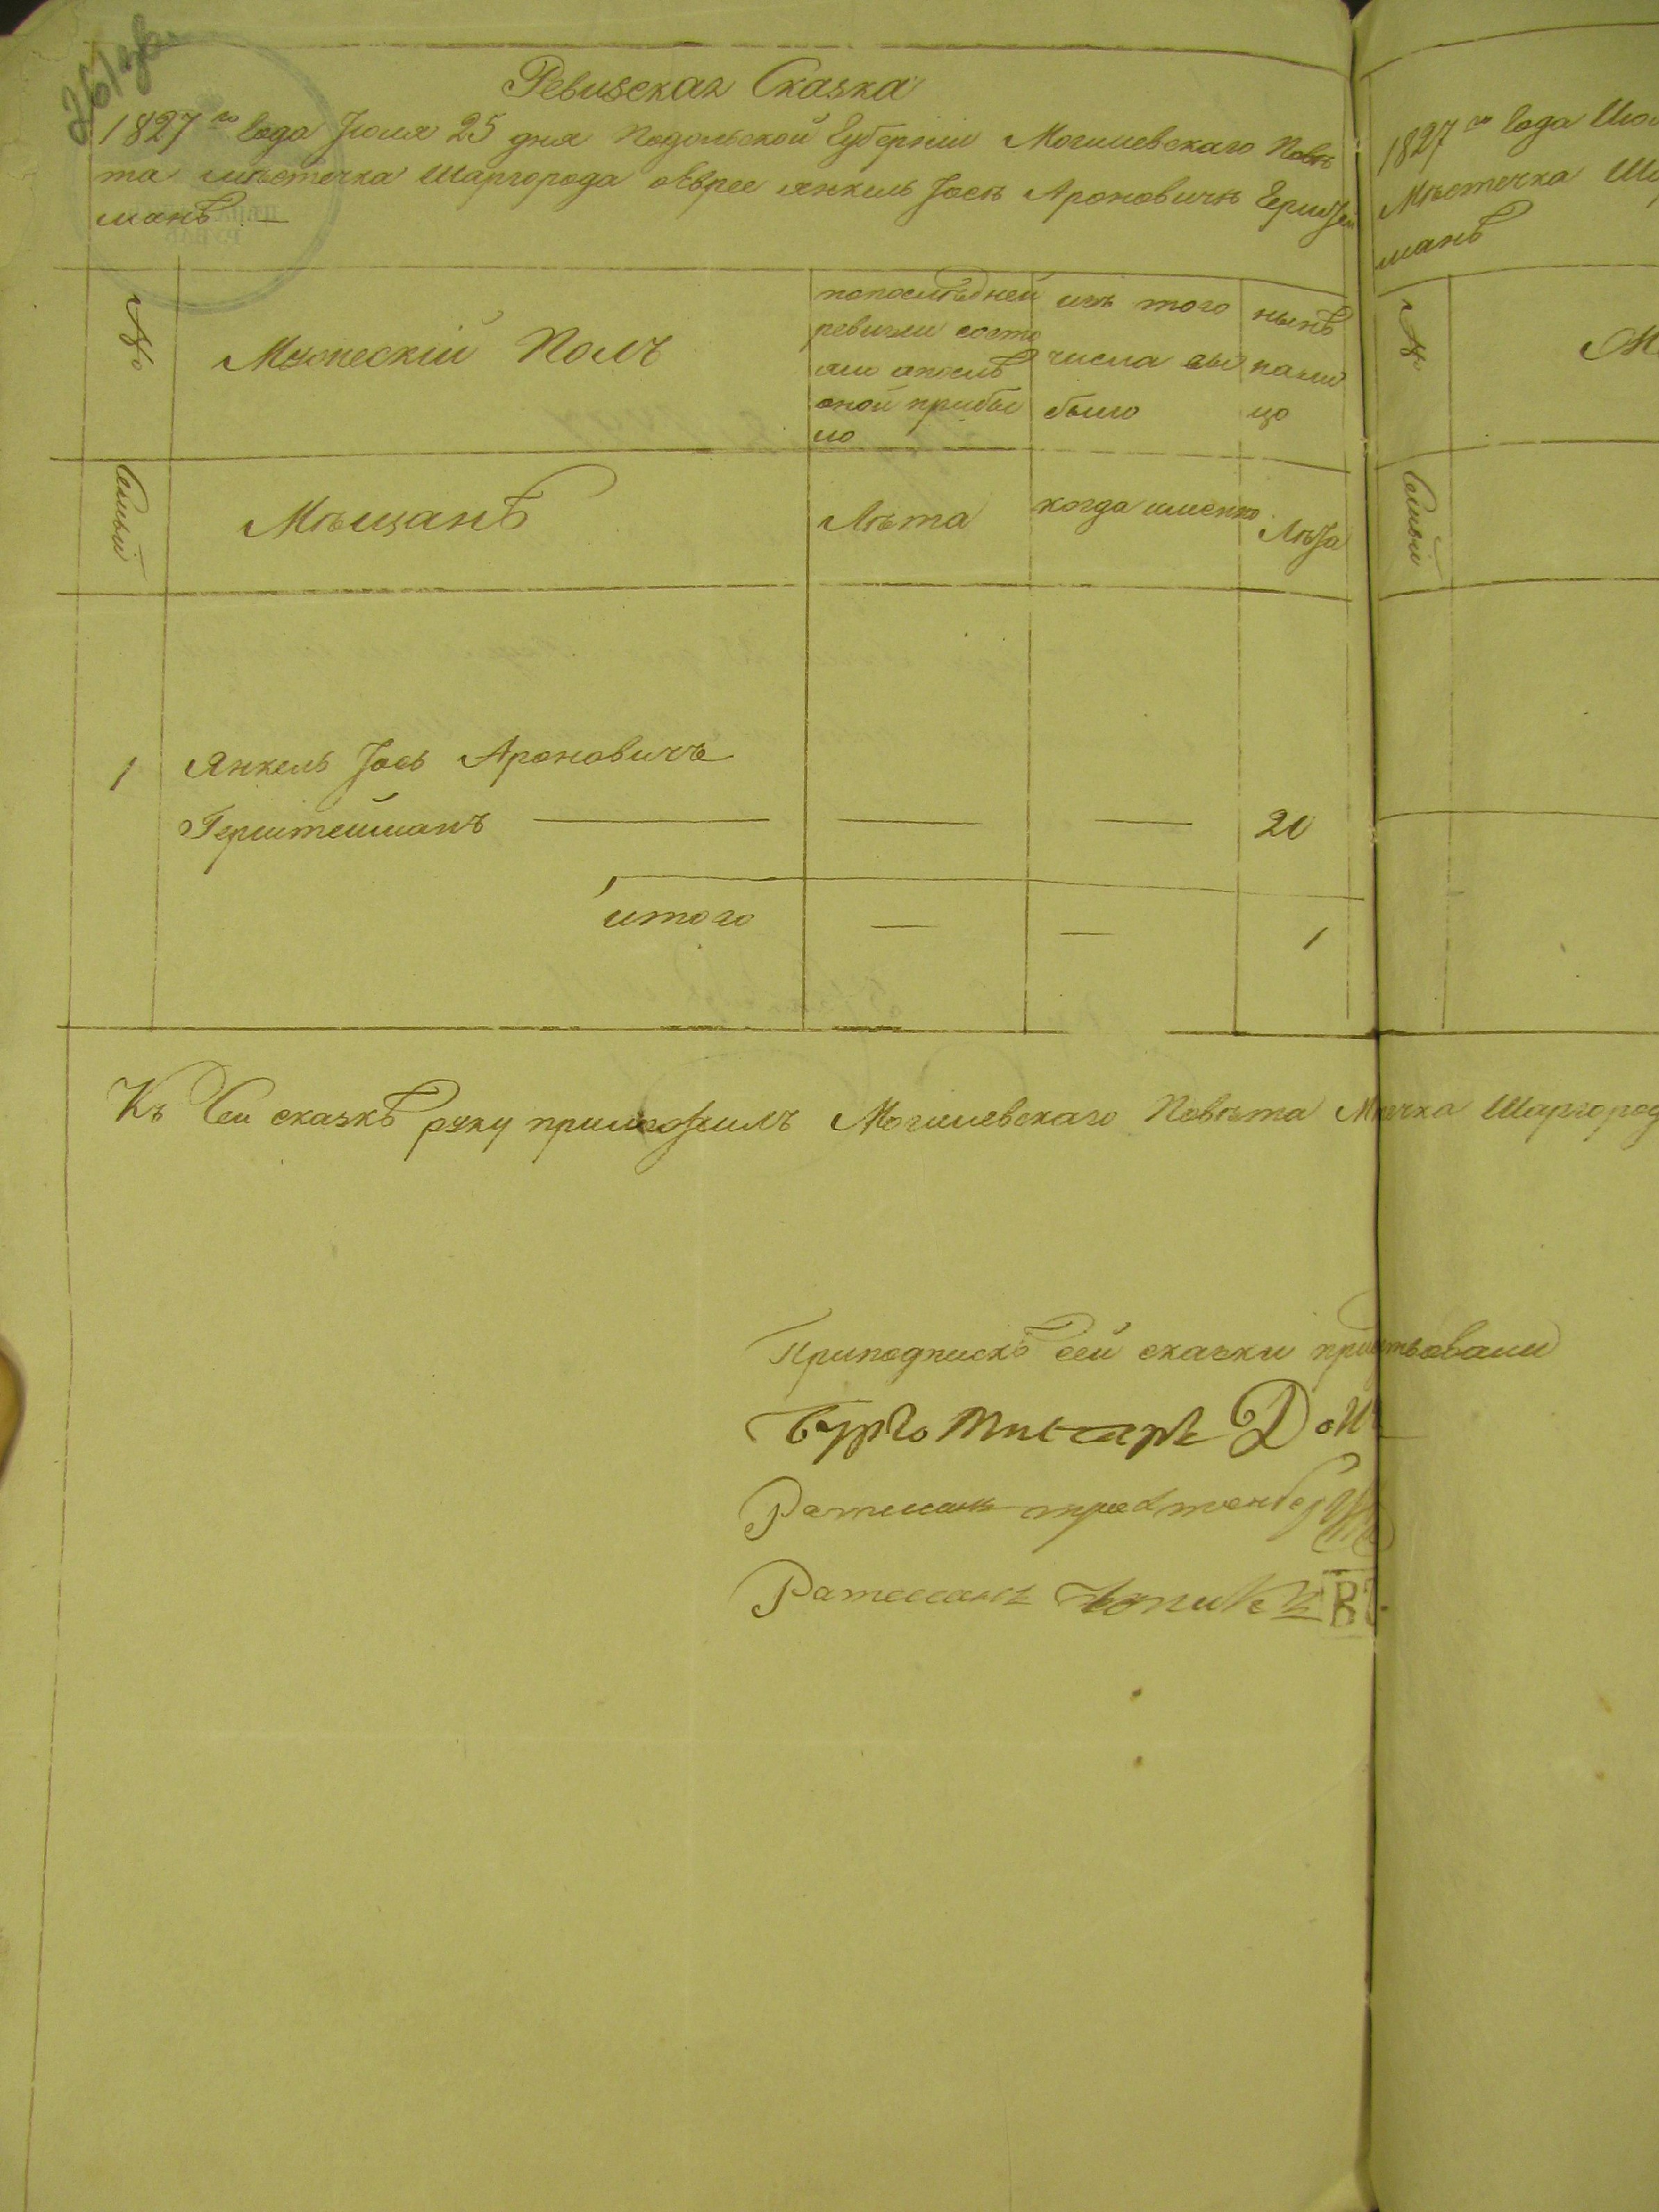 261 об.
Ревизская Сказка
1827 го Года Іюля 25 дня Подольской Губерніи Могилевскаго Повѣ
та мѣстечка Шаргорода о Еврее Янкель Іось Ароновичъ Герштей
манѣ —
№ Семьей
Мужескій Полъ
по послѣдней ревизіи состояло и послѣ оной прибыло
изъ того числа выбыло
нынѣ на лицо
Мѣщанѣ
Лѣта
когда именно
Лѣта
1 Янкель Іось Ароновичъ
Герштейманъ — — — 20
итого — — 1
Къ Сей сказкѣ руку приложилъ Могилевскаго Повѣта Мѣчка Шаргород
При подпискѣ сей сказки
Бургомистръ
Ратманъ
Ратманъ
1827 го Года
Мѣстечка
манѣ
№ Семьей